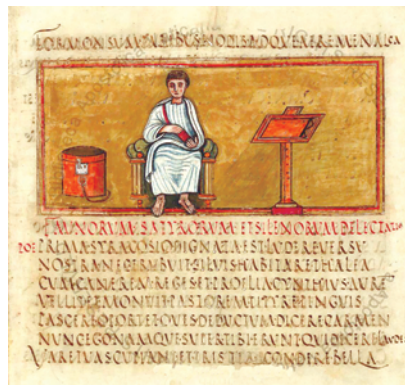 FORMONSVM PARIBVS NODIS ADQVE AERE MENALCA
FAVNORVM SATYRORVM ET SILENORVM DELECTATIO
POE PRIMA SYRACOSIO DIGNATA EST LVDERE VERSV
NOSTRA NEC ERVBVIT SILVIS HABITARE THALEA
CVM CANEREM REGES ET PROELIA CYNTHIVS AVRE
VELLIT ET MONVIT PASTOREM TITYRE PINGVIS
PASCERE OPORTET OVES DEDVCTVM DICERE CARMEN
NVNC EGO NAMQVE SVPER TIBI ERVNT QVI DICERE LAVDES
VARE TVAS CVPIANT ET TRISTIA CONDERE BELLA